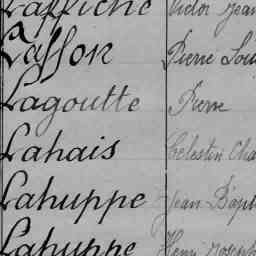 Laffiche Victor Jean
Laffon Pierre Lou
Lagoutte Pierre
Lahais Celestin Cha
Lahuppe Jean Bapt
Lahuppe Henri Joseph